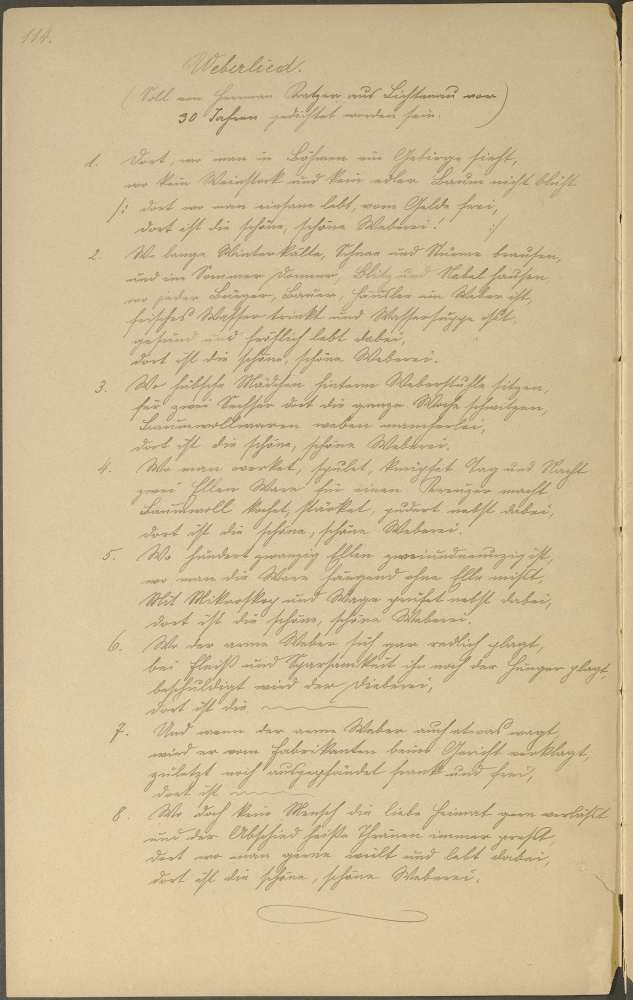 114.
Weberlied.
(Soll von Herman Ratzer aus Lichtenau vor
30 Jahren gedichtet worden sein.)
1. Dort, wo man in Böhmen ein Gebirge sieht,
wo kein Weinstock und kein edler Baum nicht blüht
/: dort wo man einsam lebt, vom Gelde frei,
dort ist die schöne, schöne Weberei! :/
2. Wo lange Winterkälte, Schnee und Sturm brausen,
und im Sommer Donner, Blitz und Nebel hausen,
wo jeder Bürger, Bauer, Häusler ein Weber ist,
frisches Wasser trinkt und Wassersuppe ißt,
gesund und fröhlich lebt dabei,
dort ist die schöne, schöne Weberei.
3. Wo hübsche Mädchen hinterm Weberstuhle sitzen,
für zwei Sechser dort die ganze Woche schwitzen,
Baumwollwaaren weben mancherlei,
dort ist die schöne, schöne Weberei.
4. Wo man werket, spulet, Tag und Nacht
zwei Ellen Ware für einen Kreuzer macht
Baumwoll kochet, stärket, pudert nebst dabei,
dort ist die schöne, schöne Weberei.
5. Wo hundert zwanzig Ellen zweiundneunzig ist,
wo man die Ware hängend ohne Elle mißt,
Mit Mikroskop und Wage prüfet nebst dabei,
dort ist die schöne, schöne Weberei.
6. Wo der arme Weber sich gar redlich plagt,
bei Fleiß und Sparsamkeit ihn noch der Hunger plagt,
beschuldigt wird der Dieberei,
dort ist die
7. Und wenn der arme Weber auch etwas wagt,
wird er vom Fabrikanten beim Gericht verklagt,
zuletzt noch ausgepfändet frank und frei,
dort ist
8. Wo doch kein Mensch die liebe Heimat gern verläßt
und der Abschied heiße Thränen immer preßt,
dort wo man gerne weilt und lebt dabei,
dort ist die schöne, schöne Weberei.